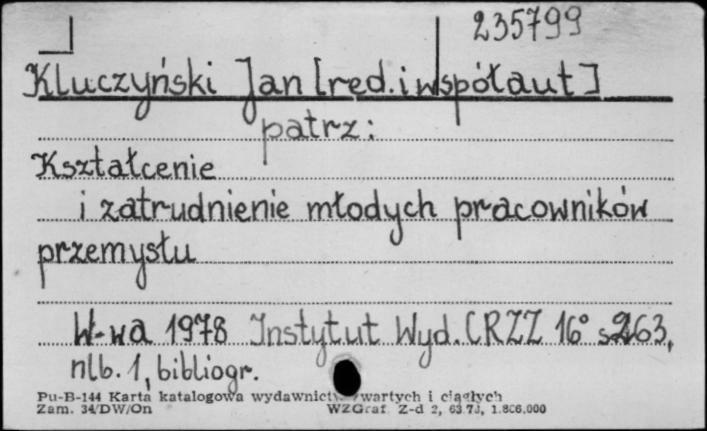 235799
Kluczyński Jan [red. i współaut]
patrz:
Kształcenie
i zatrudnienie młodych pracowników
przemysłu
W-wa 1978 Instytut Wyd. CRZZ 16° s. 263,
nlb. 1, bibliogr.
Pu-B-144 Karta katalogowa wydawnictw zwartych i ciągłych
Zam. 34/DW/On WZGraf. Z-d 2, 1.806.000